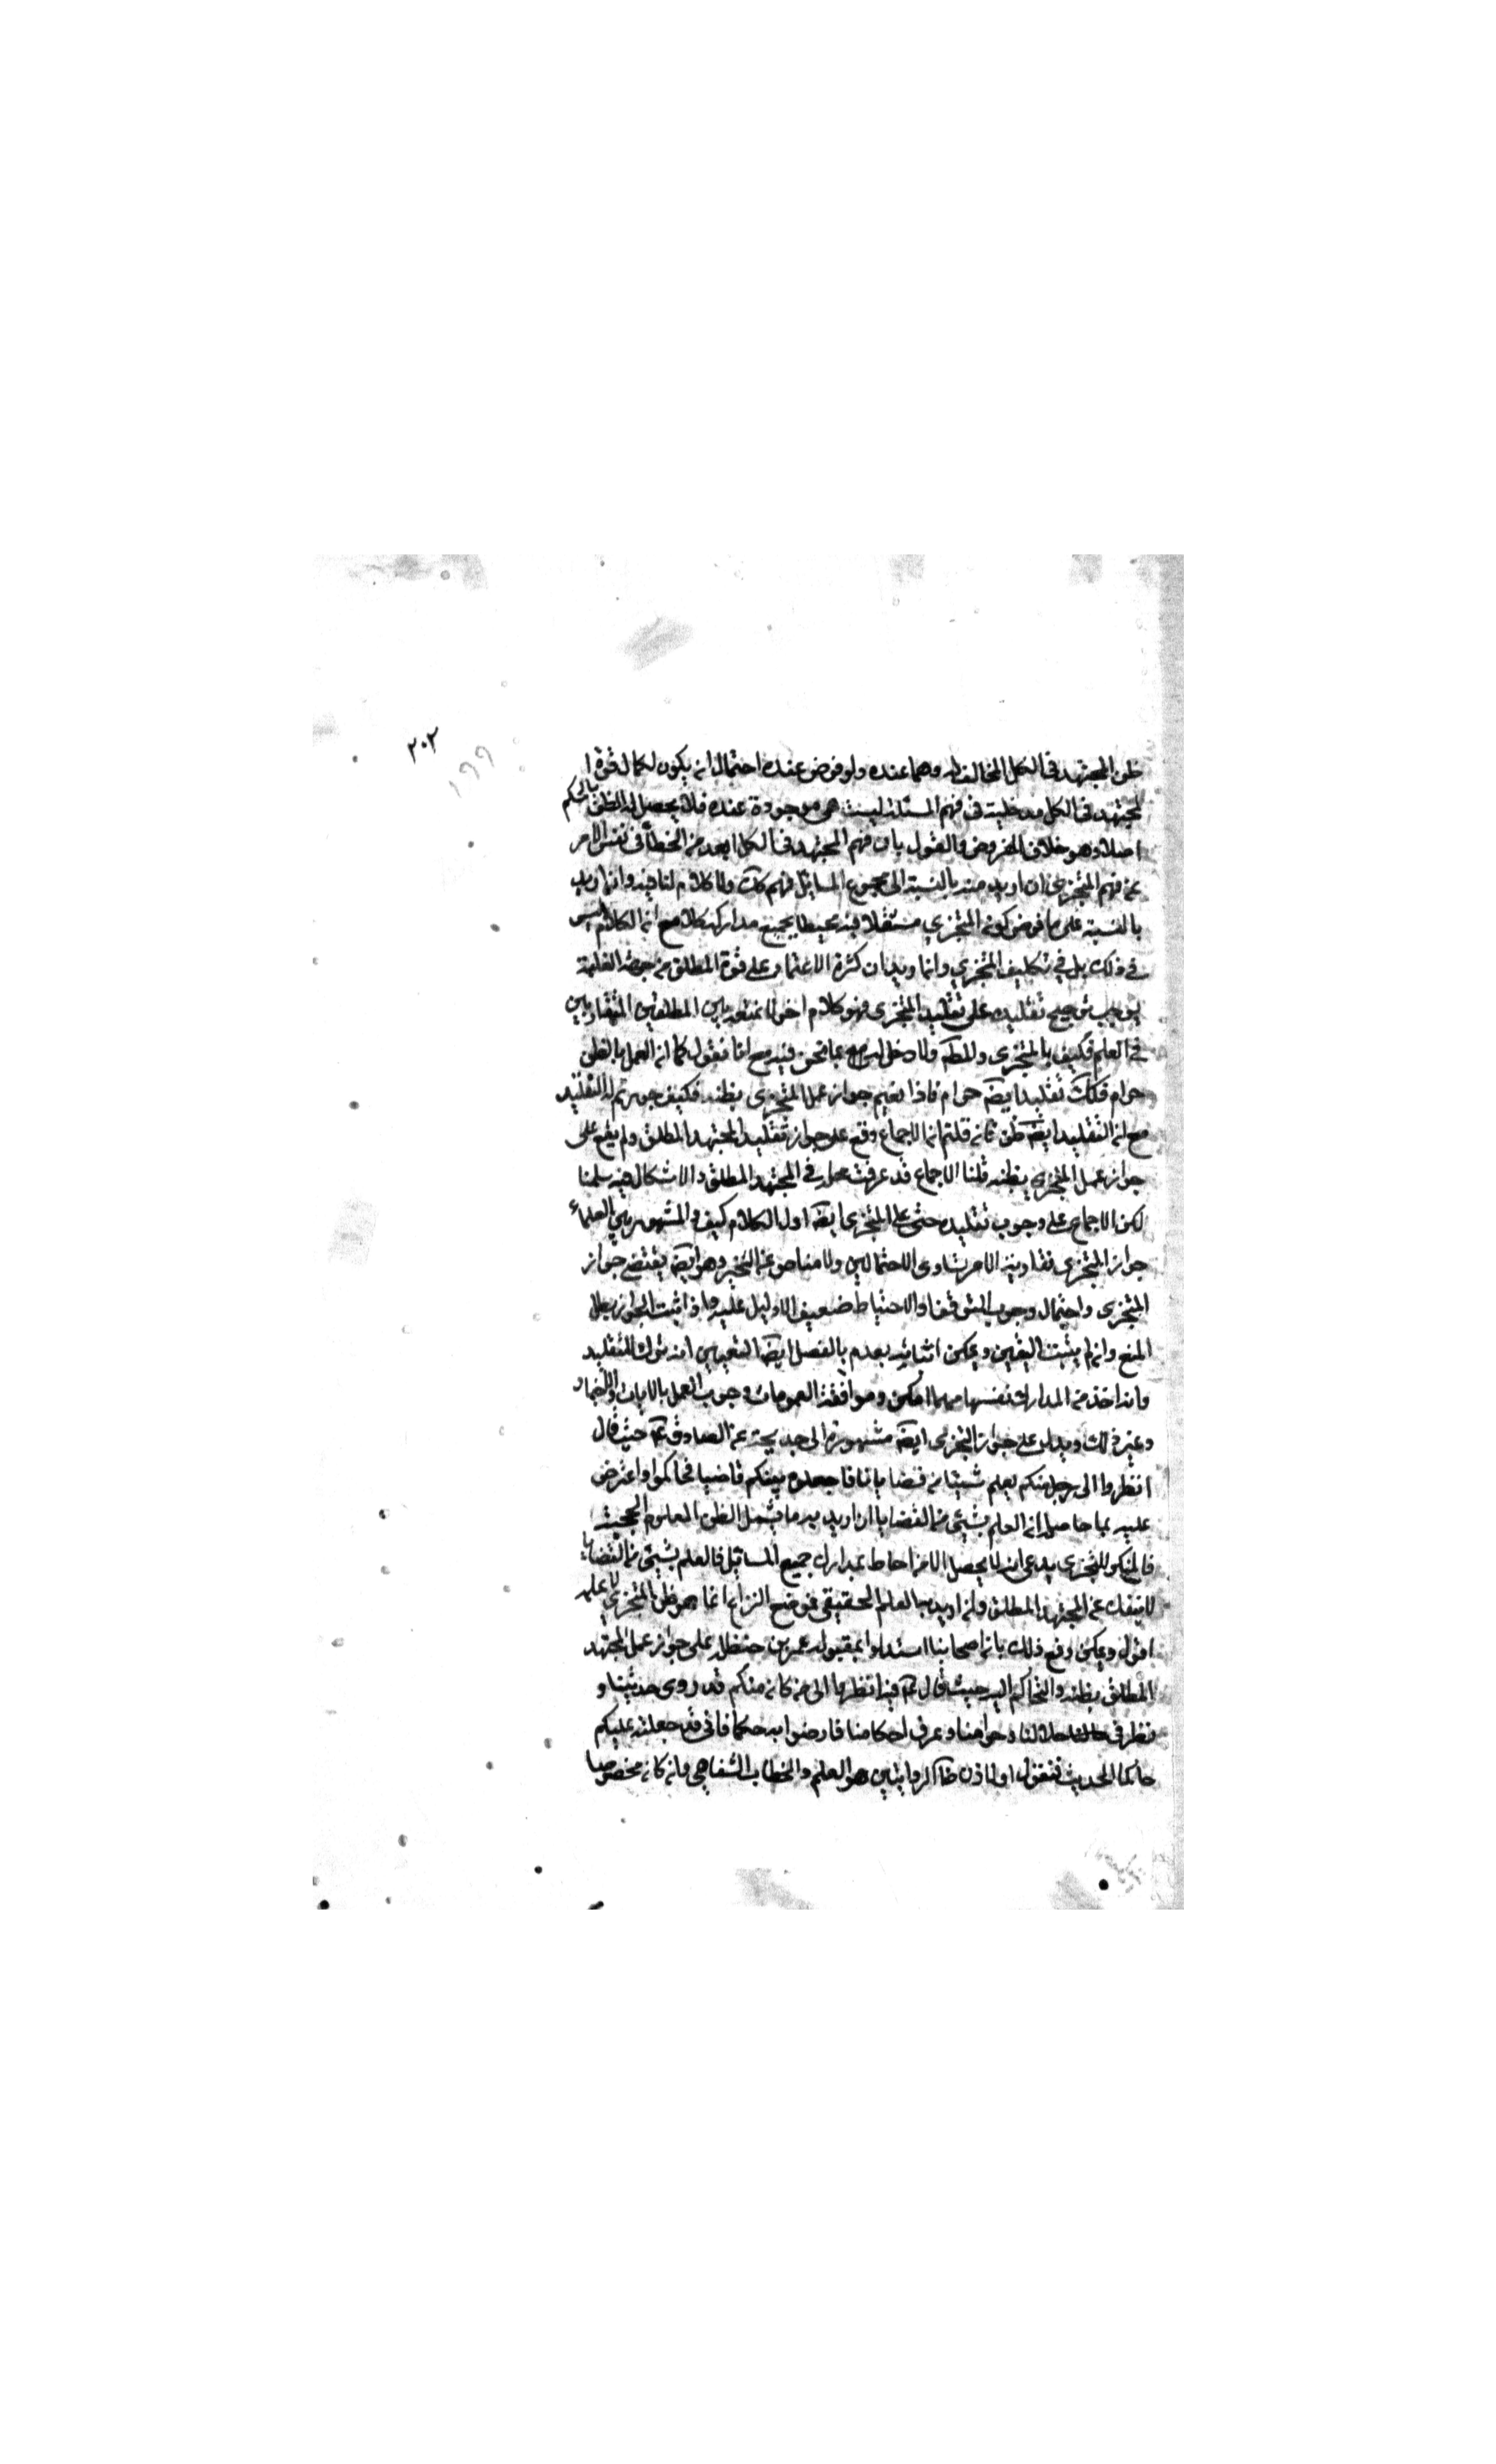 ٢٠٢
١٩٩
ظن المجتهد في الكل المخالف له وهما عنده ولو فرض عنده احتمال ان يكون لكمال قوة ا
لمجتهد في الكل مدخلية في فهم المسئلة ليست هي موجودة عنده فلا يحصل له الظن بالحكم
اصلا وهو خلاف المفروض والقول بان فهم المجتهد في الكل ابعد من الخطأ في نفس الامر
عن فهم المتجزي ان اريد منه بالنسبة الى مجموع المسايل فهم كك ولا كلام لنا فيه وان اريد
بالنسبة على ما فرض كون المتجزي مستقلا فيه محيطا بجميع مداركه كلا مع ان الكلام ليس
في ذلك بل في تكليف المتجزي وان اريد ان كثرة الاعتماد على قوة المطلق من جهة الغلبة
يوجب ترجيح تقليده على تقليد المتجزي فهو كلام اخر لا نمنعه بين المطلقين المتقاربين
في العلم فكيف بالمتجزي والمطلق ولا دخل له بما نحن فيه مع انا نقول كما ان العمل بالظن
حرام فكك تقليد ايضا حرام فاذا نفيتم جواز عمل المتجزي بظنه فكيف جوزتم له التقليد
مع ان التقليد ايضا ظن فان قلتم ان الاجماع وقع على جواز تقليد المجتهد المطلق ولم يقع على
جواز عمل المتجزي بظنه قلنا الاجماع قد عرفت محله في المجتهد المطلق والاشكال فيه سلمنا
لكن الاجماع على وجوب تقليده حتى على المتجزي ايضا اول الكلام كيف والمشهور بين العلماء
جواز المتجزي فغاية الامر تساوي الاحتمالين ولا مناص عن التخيير وهو ايضا يقتضي جواز
المتجزي واحتمال وجوب التوقف والاحتياط ضعيف لا دليل عليه واذا ثبت الجواز بطل
المنع وان لم يثبت اليقين ويمكن اثباته بعدم بالفصل ايضا التعيين انه ترك للتقليد
وانه اخذ من المدارك نفسها مهما امكن وموافقة العمومات وجوب العمل بالايات والاخبار
وغير ذلك ويدل على جواز التجزي ايضا مشهورة ابي خديجة عن الصادق ع حيث قال
انظروا الى رجل منكم يعلم شيئا من قضايانا فاجعلوه بينكم قاضيا فتحاكموا واعترض
عليه بما حاصله ان العلم بشئ من القضايا ان اريد به ما يشمل الظن المعلوم الحجية
فالمنكر للتجزي يدعي انه لا يحصل الا من احاط بمدارك جميع المسايل فالعلم بشئ من القضايا
لا ينفك عن المجتهد المطلق وان اريد به العلم الحقيقي فموضع النزاع انما هو ظن المتجزي لا علمه
اقول ويمكن دفع ذلك بان اصحابنا استدلوا بمقبولة عمر بن حنظلة على جواز عمل المجتهد
المطلق بظنه والتحاكم اليه حيث قال ع فيه انظروا الى من كان منكم قد روى حديثنا و
نظر في حلالنا وحرامنا وعرف احكامنا فارضوا به حكما فاني قد جعلته عليكم
حاكما الحديث فنقول اولا ان ظاهر الروايتين هو العلم والخطاب الشفاهي وان كان مخصوصا